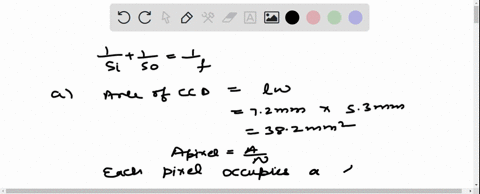 1/Si + 1/So = 1/f
a) Area of CCD = lw
= 7.2mm x 5.3mm
= 38.2mm²
Apixel = A/N
Each pixel occupies a